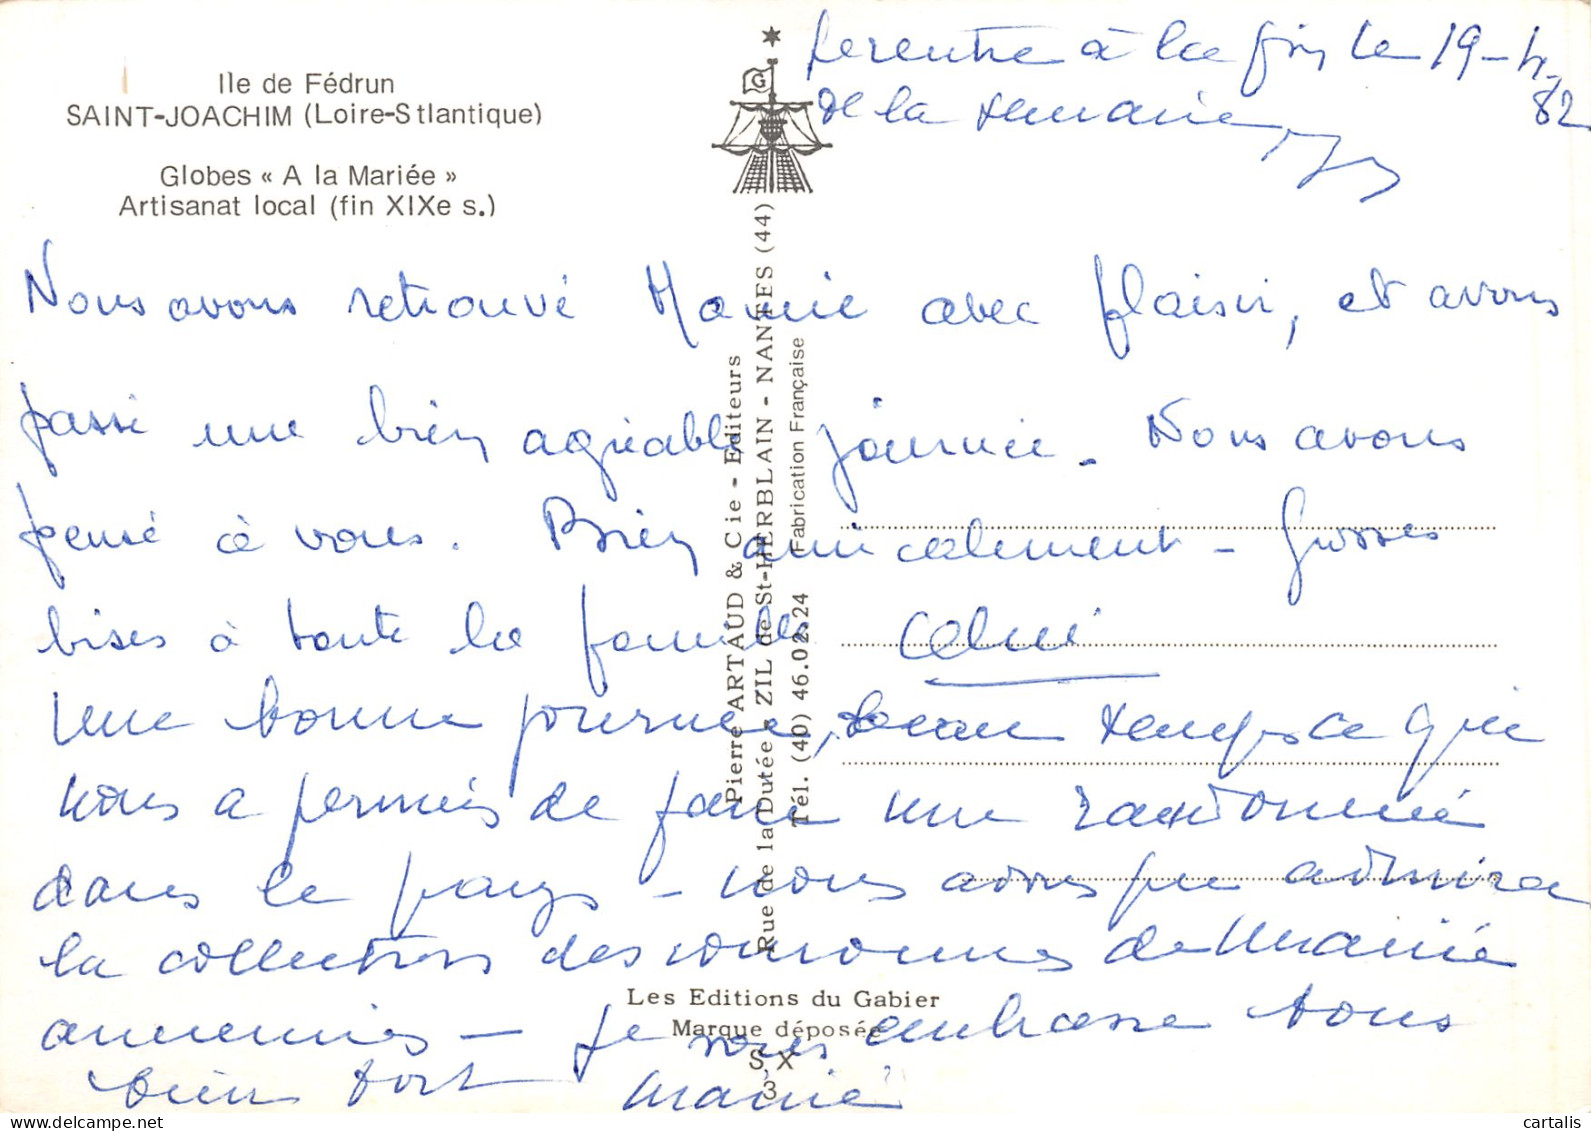 Ile de Fédrun
SAINT-JOACHIM (Loire-Stlantique)
Globes « A la Mariée »
Artisanat local (fin XIXe s.)
G
Je rentre à la fin le 19-4-82
de la semaine,
Nous avons retrouvé Mamie avec plaisir, et avons
passé une bien agréable journée. Nous avons
pensé à vous. Bien amicalement - Grosses
bises à toute la famille
Une bonne journée, beau temps ce qui
nous a permis de faire une randonnée
dans le pays - nous avons pu admirer
la collection des couronnes de mariée
anciennes - Je vous embrasse tous
bien fort
Pierre ARTAUD & Cie - Editeurs
Rue de la Dutée - ZIL de St-HERBLAIN - NANTES (44)
Tél. (40) 46.02.24 Fabrication Française
Les Editions du Gabier
Marque déposée
S X
3
delcampe.net
cartalis